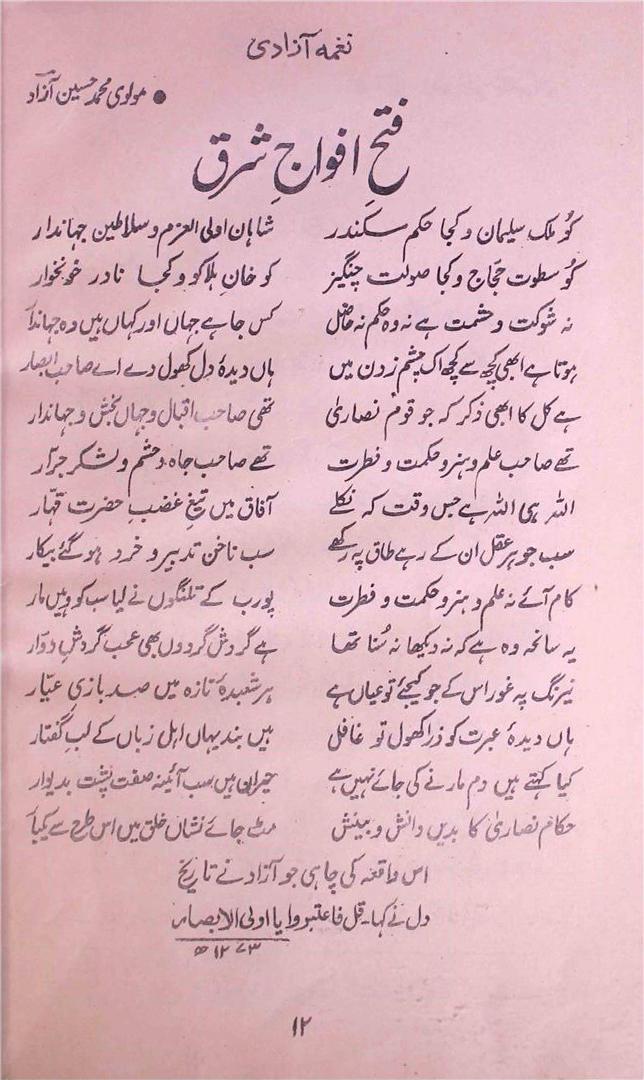 نغمہ آزادی
● مولوی محمد حسین آزاد
فتحِ افواجِ شرق
کُو ملکِ سلیمان و کجا حکمِ سکندر شاہانِ اولی العزم و سلاطینِ جہاندار
کُو سطوتِ حجّاج و کجا صولتِ چنگیز کو خانِ ہلاکو و کجا نادرِ خونخوار
نہ شوکت و حشمت ہے نہ وہ حکم نہ حاصل کس جا ہے جہاں اور کہاں ہیں وہ جہاندار
ہوتا ہے ابھی کچھ سے کچھ اک چشم زدن میں ہاں دیدۂ دل کھول دے اے صاحبِ ابصار
ہے کل کا ابھی ذکر کہ جو قومِ نصاریٰ تھی صاحبِ اقبال و جہاں بخش و جہاندار
تھے صاحبِ علم و ہنر و حکمت و فطرت تھے صاحبِ جاہ و حشم و لشکرِ جرّار
اللہ ہی اللہ ہے جس وقت کہ نکلے آفاق میں تیغِ غضبِ حضرتِ قہّار
سب جوہرِ عقل ان کے رہے طاق پہ رکھے سب ناخنِ تدبیر و خرد ہو گئے بیکار
کام آئے نہ علم و ہنر و حکمت و فطرت پورب کے تلنگوں نے لیا سب کو وہیں مار
یہ سانحہ وہ ہے کہ نہ دیکھا نہ سُنا تھا ہے گردشِ گردوں بھی عجب گردشِ دوّار
نیرنگ پہ غور اس کے جو کیجئے تو عیاں ہے ہر شعبدۂ تازہ میں صد بازیِ عیّار
ہاں دیدۂ عبرت کو ذرا کھول تو غافل ہیں بند یہاں اہلِ زباں کے لبِ گفتار
کیا کہئے ہیں دم مارنے کی جائے نہیں ہے حیراں ہیں سب آئینہ صفت پشت بدیوار
حکامِ نصاریٰ کا بدیں دانش و بینش مٹ جائے نشاں خلق میں اس طرح سے یکبار
اس واقعہ کی چاہی جو آزاد نے تاریخ
دل نے کہا۔ قل فاعتبروا یا اولی الابصار
۱۲۷۳ھ
۱۲